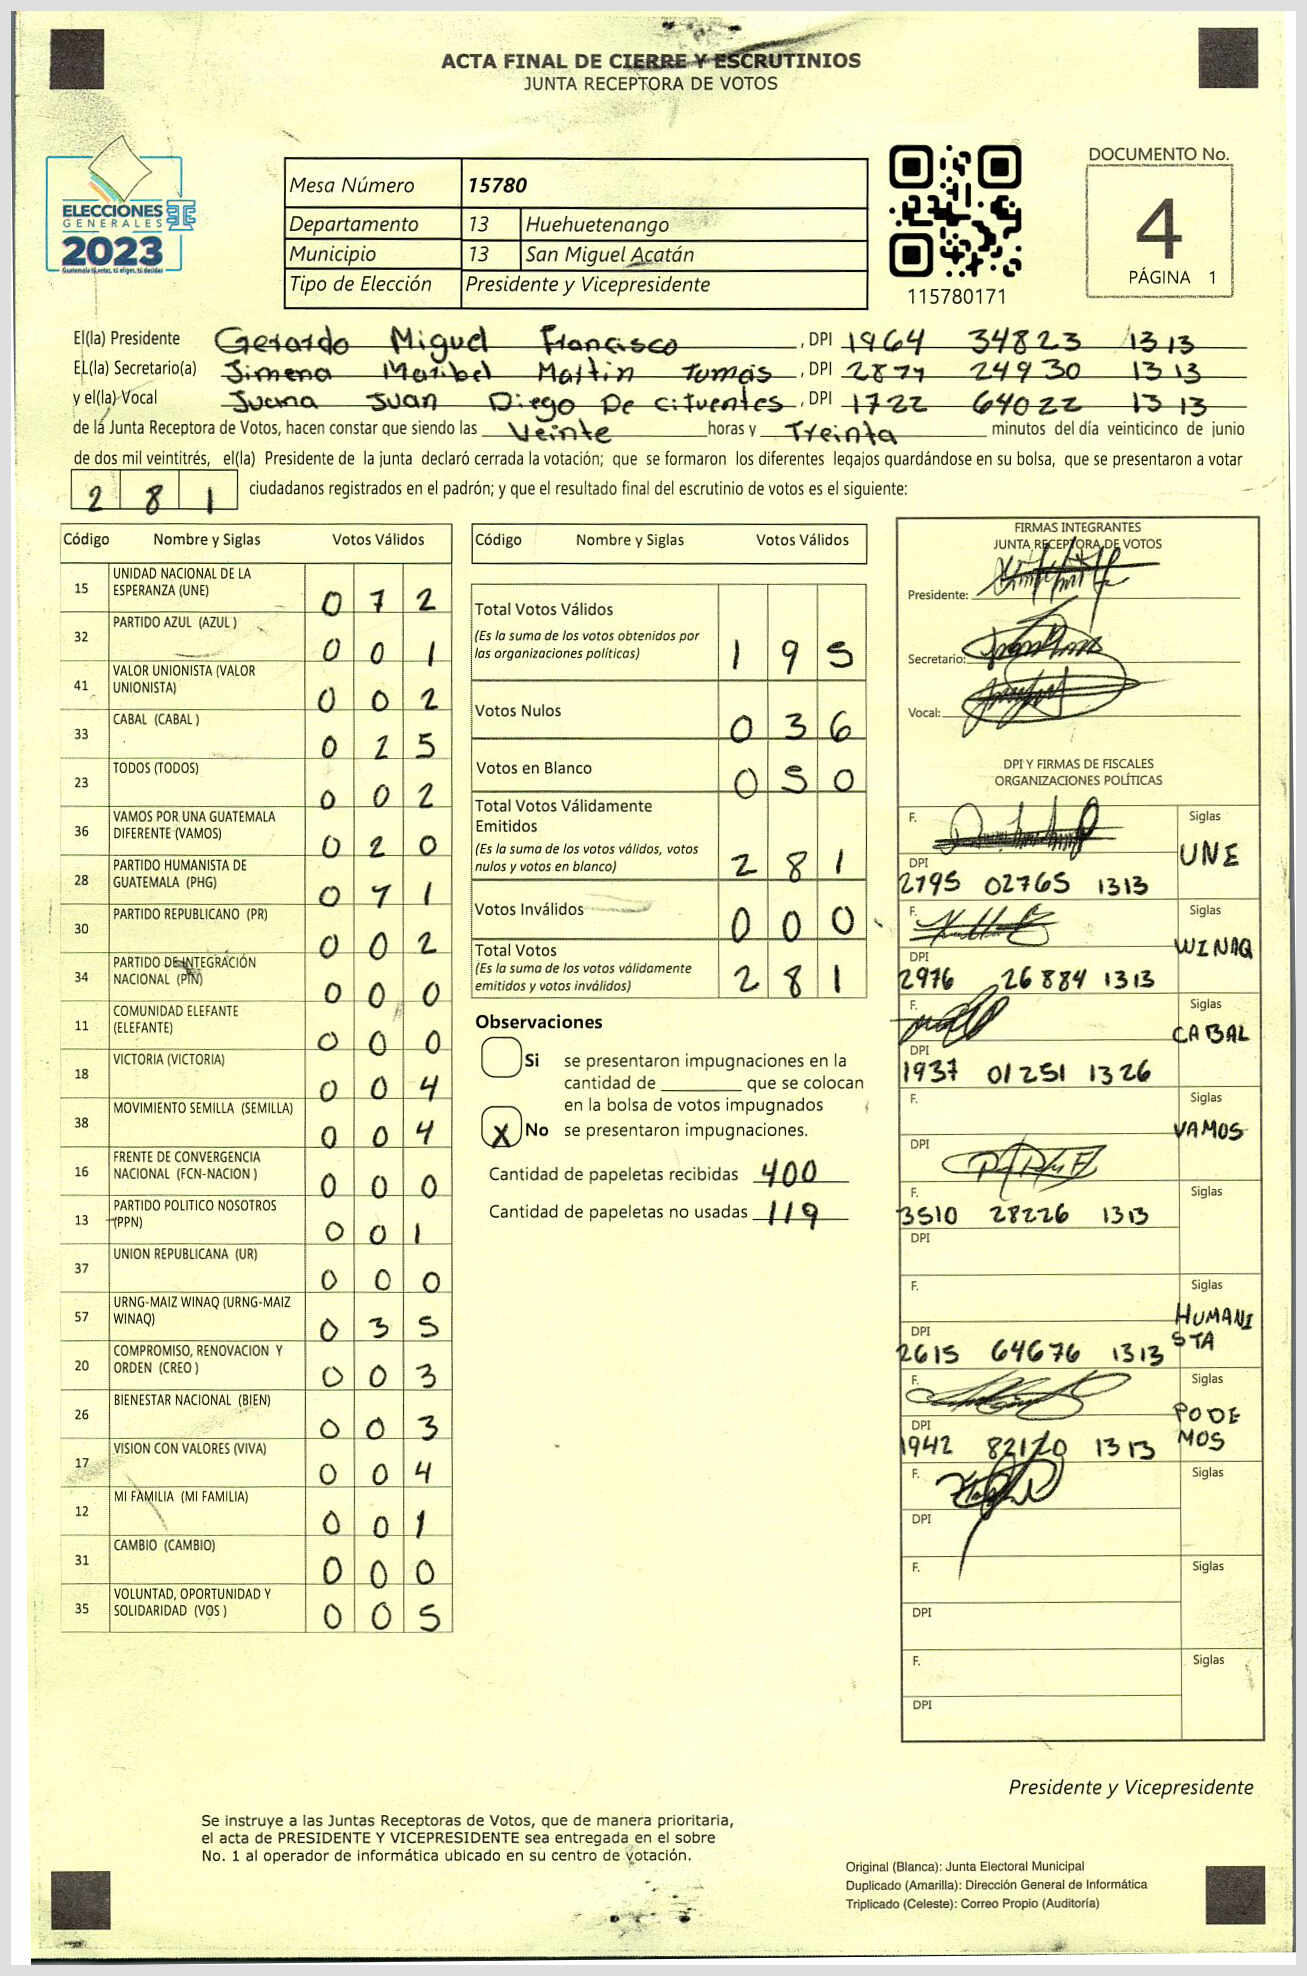 ACTA FINAL DE CIERRE Y ESCRUTINIOS
JUNTA RECEPTORA DE VOTOS
ELECCIONES
GENERALES
2023
Mesa Número 15780
Departamento 13 Huehuetenango
Municipio 13 San Miguel Acatán
Tipo de Elección Presidente y Vicepresidente
115780171
DOCUMENTO No.
4
PÁGINA 1
El(la) Presidente Gerardo Miguel Francisco, DPI 1964 34823 1313
EL(la) Secretario(a) Jimena Maribel Martin Tomás, DPI 2877 24930 1313
y el(la) Vocal Juana Juan Diego De Cifuentes, DPI 1722 64022 1313
de la Junta Receptora de Votos, hacen constar que siendo las Veinte horas y Treinta minutos del día veinticinco de junio
de dos mil veintitrés, el(la) Presidente de la junta declaró cerrada la votación; que se formaron los diferentes legajos guardándose en su bolsa, que se presentaron a votar
281 ciudadanos registrados en el padrón; y que el resultado final del escrutinio de votos es el siguiente:
Código Nombre y Siglas Votos Válidos
15 UNIDAD NACIONAL DE LA ESPERANZA (UNE) 072
32 PARTIDO AZUL (AZUL ) 001
41 VALOR UNIONISTA (VALOR UNIONISTA) 002
33 CABAL (CABAL ) 025
23 TODOS (TODOS) 002
36 VAMOS POR UNA GUATEMALA DIFERENTE (VAMOS) 020
28 PARTIDO HUMANISTA DE GUATEMALA (PHG) 071
30 PARTIDO REPUBLICANO (PR) 002
34 PARTIDO DE INTEGRACIÓN NACIONAL (PIN) 000
11 COMUNIDAD ELEFANTE (ELEFANTE) 000
18 VICTORIA (VICTORIA) 004
38 MOVIMIENTO SEMILLA (SEMILLA) 004
16 FRENTE DE CONVERGENCIA NACIONAL (FCN-NACION ) 000
13 PARTIDO POLITICO NOSOTROS (PPN) 001
37 UNION REPUBLICANA (UR) 000
57 URNG-MAIZ WINAQ (URNG-MAIZ WINAQ) 035
20 COMPROMISO, RENOVACION Y ORDEN (CREO ) 003
26 BIENESTAR NACIONAL (BIEN) 003
17 VISION CON VALORES (VIVA) 004
12 MI FAMILIA (MI FAMILIA) 001
31 CAMBIO (CAMBIO) 000
35 VOLUNTAD, OPORTUNIDAD Y SOLIDARIDAD (VOS ) 005
Código Nombre y Siglas Votos Válidos
Total Votos Válidos 195
(Es la suma de los votos obtenidos por las organizaciones políticas)
Votos Nulos 036
Votos en Blanco 050
Total Votos Válidamente Emitidos 281
(Es la suma de los votos válidos, votos nulos y votos en blanco)
Votos Inválidos 000
Total Votos 281
(Es la suma de los votos válidamente emitidos y votos inválidos)
Observaciones
Si se presentaron impugnaciones en la
cantidad de ________ que se colocan
en la bolsa de votos impugnados
X No se presentaron impugnaciones.
Cantidad de papeletas recibidas 400
Cantidad de papeletas no usadas 119
FIRMAS INTEGRANTES
JUNTA RECEPTORA DE VOTOS
Presidente:
Secretario:
Vocal:
DPI Y FIRMAS DE FISCALES
ORGANIZACIONES POLÍTICAS
F. Siglas UNE
DPI 2795 02765 1313
F. Siglas WINAQ
DPI 2976 26884 1313
F. Siglas CABAL
DPI 1937 01251 1326
F. Siglas VAMOS
DPI
F. Siglas
3510 28226 1313
DPI
F. Siglas HUMANISTA
DPI 2615 64676 1313
F. Siglas PODEMOS
DPI 1942 82120 1313
F. Siglas
DPI
F. Siglas
DPI
F. Siglas
DPI
Presidente y Vicepresidente
Se instruye a las Juntas Receptoras de Votos, que de manera prioritaria,
el acta de PRESIDENTE Y VICEPRESIDENTE sea entregada en el sobre
No. 1 al operador de informática ubicado en su centro de votación.
Original (Blanca): Junta Electoral Municipal
Duplicado (Amarilla): Dirección General de Informática
Triplicado (Celeste): Correo Propio (Auditoría)